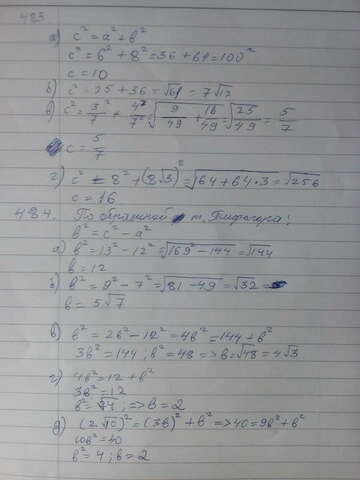 483
а) c² = a² + b²
c² = 6² + 8² = 36 + 64 = 100²
c = 10
б) c² = 25 + 36 = √61 = 7√12
в) c² = 3²/7 + 4²/7 = √(9/49 + 16/49) = √(25/49) = 5/7
c = 5/7
г) c² = 8² + (8√3)² = √(64 + 64·3) = √256
c = 16
484. По обратной т. Пифагора:
b² = c² - a²
а) b² = 13² - 12² = √(169² - 144) = √144
b = 12
б) b² = 9² - 7² = √(81 - 49) = √32
b = 5√7
в) b² = 2b² - 12² = 4b² = 144 + b²
3b² = 144; b² = 48 => b = √48 = 4√3
г) 4b² = 12 + b²
3b² = 12
b² = 4; => b = 2
д) (2√10)² = (3b)² + b² => 40 = 9b² + b²
10b² = 40
b² = 4; b = 2